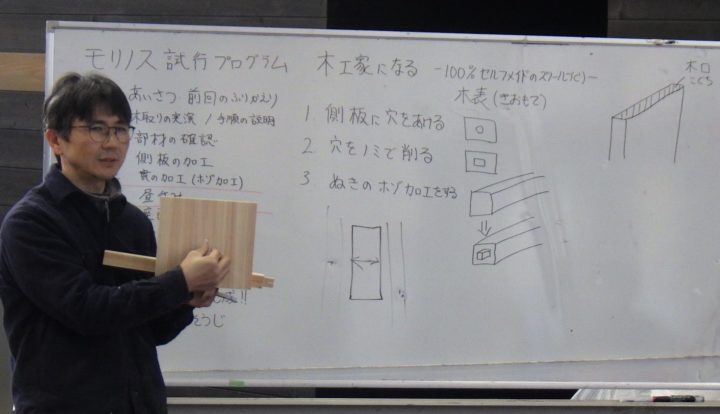 モリノス 試行プログラム 木工家になる -100%セルフメイドのスツールづくり-
あいさつ・前回のふりかえり
木取りの実演 / 手順の説明
部材の確認
側板の加工
貫の加工 (ホゾ加工)
1. 側板に穴をあける
2. 穴をノミで削る
3. ぬきのホゾ加工をする
木表 (きおもて)
木口
こぐち